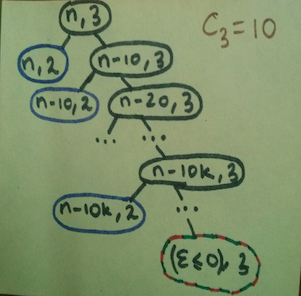 n, 3
C₃=10
n, 2
n-10, 3
n-10, 2
n-20, 3
... ...
n-10k, 3
n-10k, 2
...
(ε≤0), 3